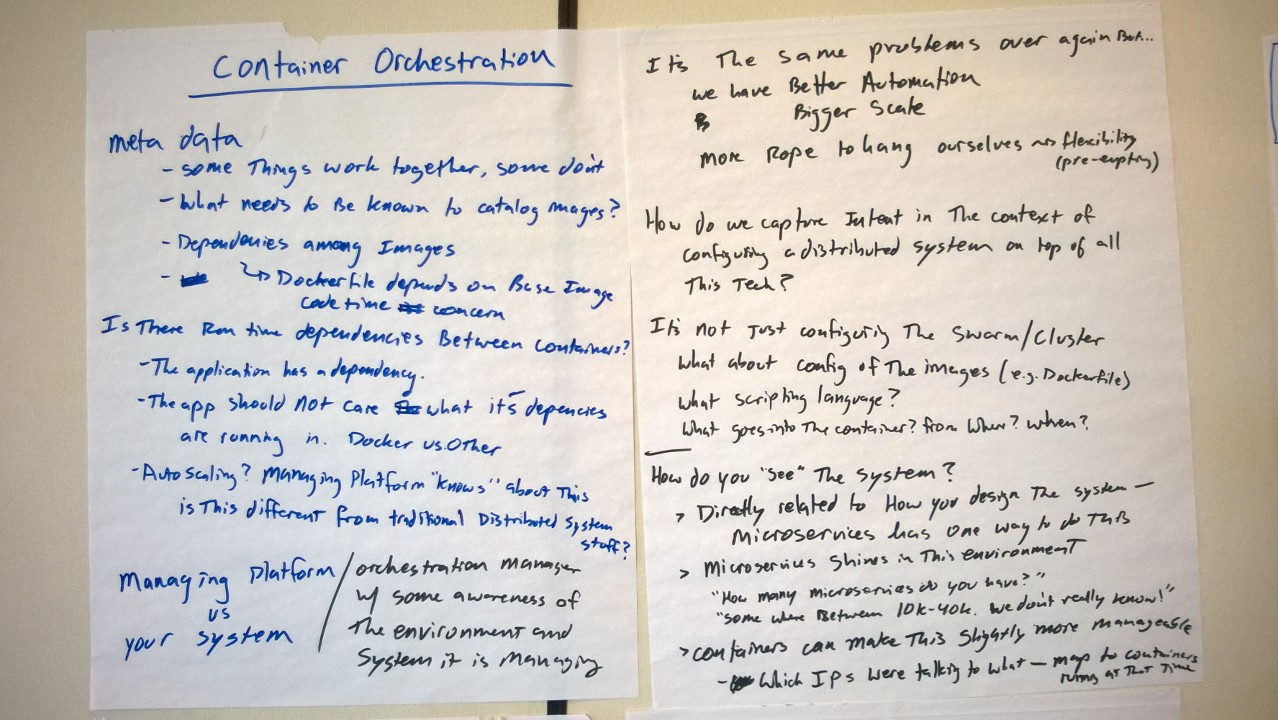 Container Orchestration
meta data
- some Things work together, some don't
- What needs to Be known to catalog mages?
- Dependenies among Images
-
↳ Dockerfile depends on Base Image
code time concern
Is There Run time dependencies Between containers?
- The application has a dependency.
- The app should not care what it's depencies
are running in. Docker vs. Other
- Auto scaling? Managing Platform "knows" about This
is This different from traditional Distributed System
stuff?
Managing Platform
vs
your system
/ orchestration manager
w/ some awareness of
The environment and
System it is managing
Its The same problems over again But...
we have Better Automation
Bigger Scale
More Rope to hang ourselves flexibility
(pre-empting)
How do we capture Intent in The context of
configuring a distributed system on top of all
This Tech?
It's not Just configuring The Swarm/Cluster
What about config of The images (e.g. Dockerfile)
what scripting language?
What goes into The container? from Where? when?
How do you "see" The system?
> Directly related to How you design The system —
Microservices has one way to do This
> Microservices Shines in This environment
"How many microservices do you have?"
"Some where Between 10k-40k. We don't really know!"
> containers can make This slightly more manageable
- Which IPs were talking to what — map to containers
runing at That Time